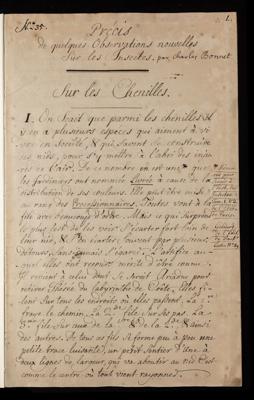 N.o 35.
1.
Précis
de quelques Observations nouvelles
Sur les Insectes. par Charles Bonnet
Sur les Chenilles.
I. On Scait que parmi les chenilles il
y en a plusieurs especes qui aiment à vi-
vre en Société, & qui savent Se construire
des nids, pour S'y mettre à l'abri des inju-
res de l'air. De ce nombre en est une que
les ont nommée Livrée à cause de la
distribution de ses couleurs. Elle peut être mise
au rang des Processionnaires. Toutes vont à la
file avec beaucoup d'ordre. Mais ce qui Surprend
le plus c'est de les voir S'écarter fort loin de
leur nid, & S'en écarter Souvent par plusieurs
détours Sans jamais S'égarer. L'artifice au-
quel elles ont recours mérite d'être connu.
Il revient à celui dont Se Servit Ariadne pour
retirer Thésée du Labyrinthe de Crète. Elles fi-
lent Sur tous les endroits où elles passent. La 1.re
fraye le chemin. La 2.de file Sur Ses pas. La
3.e file Sur ceux de la & de la 2.de & ainsi
des autres. De tous ces fils Se forme peu à peu une
petite trace luisante, un petit Sentier d'une à
deux lignes de largeur, qui va aboutir au nid C'est
comme le centre où tout vient rayonner.